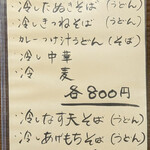 ・冷したぬきそば(うどん)
・冷しきつねそば(うどん)
・カレーつけ汁うどん(そば)
・冷し中華
・冷麦
各800円
・冷しなす天そば(うどん)
・冷しあげもちそば(うどん)